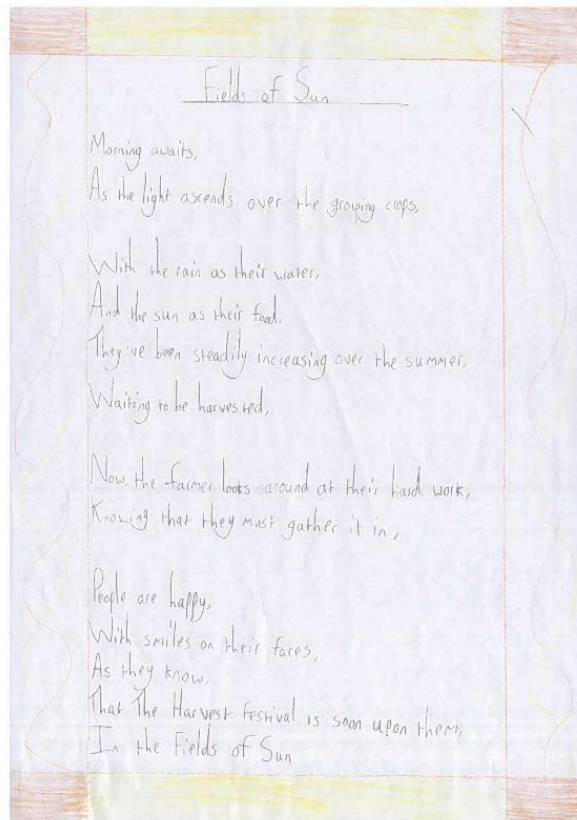 Fields of Sun
Morning awaits,
As the light ascends over the growing crops,
With the rain as their water,
And the sun as their food,
They've been steadily increasing over the summer,
Waiting to be harvested,
Now, the farmer looks around at their hard work,
Knowing that they must gather it in,
People are happy,
With smiles on their faces,
As they know,
That The Harvest festival is soon upon them,
In the Fields of Sun